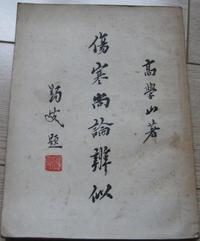 高學山著
傷寒尚論辨似